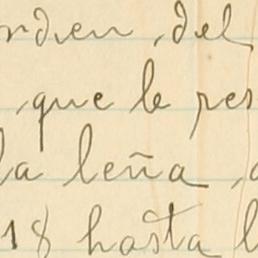 orden, del
, que le res
la leña,
18 hasta l